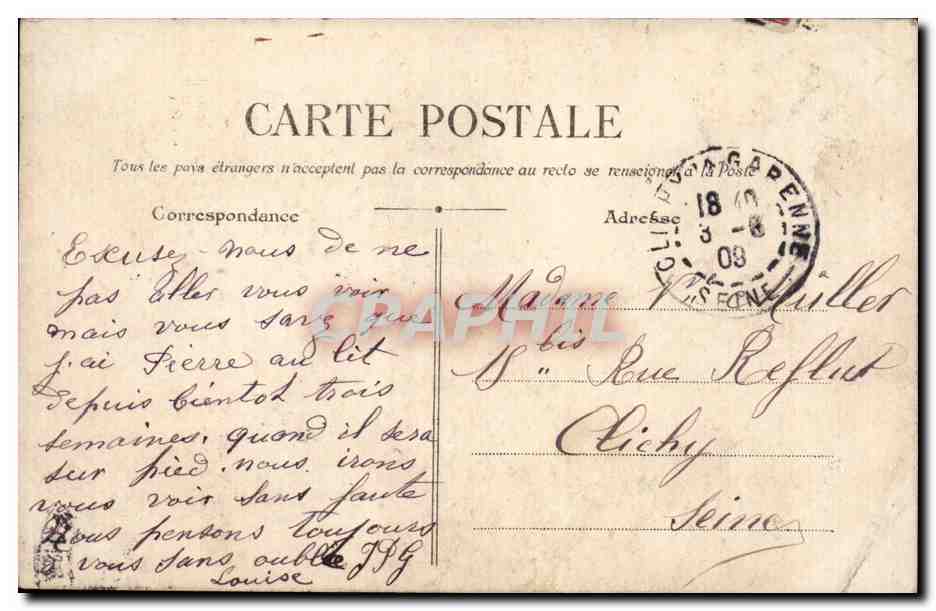 CARTE POSTALE
Tous les pays étrangers n'acceptent pas la correspondance au recto se renseigner à la Poste
Correspondance
Exusez-nous de ne
pas aller vous voir
mais vous savez que
j'ai Pierre au lit
depuis bientot trois
semaines. quand il sera
sur pied. nous irons
vous voir sans faute
nous pensons toujours
a vous sans oublie JPG
Louise
Adresse
Madame Muller
18 bis Rue Reflut
Clichy
Seine
CLICHY LA GARENNE
18 40
3 - 8
09
SEINE
CPAPHIL